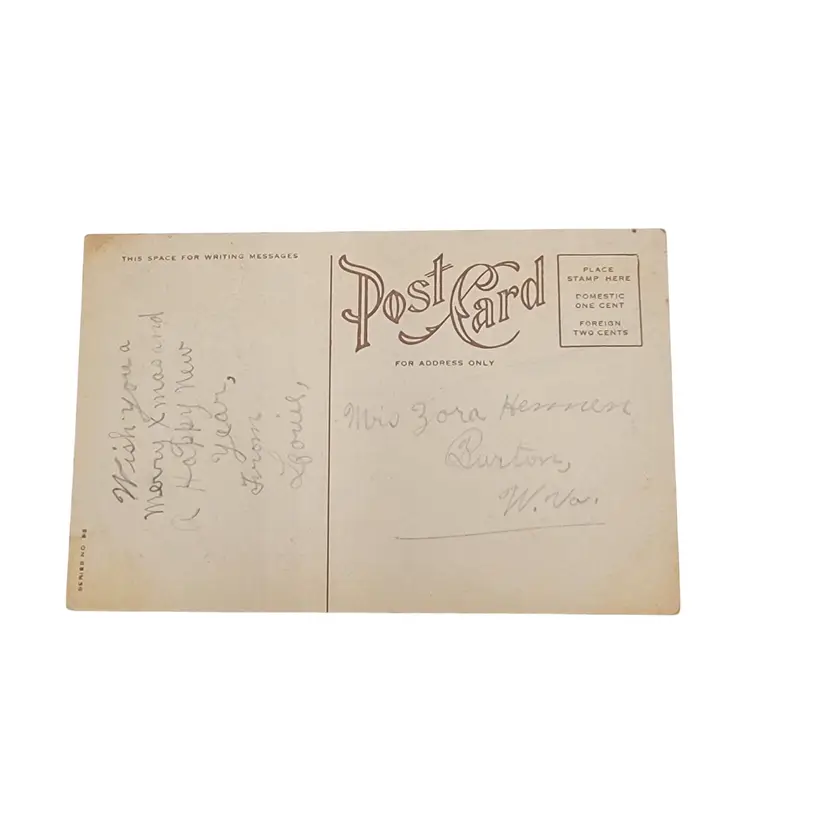 THIS SPACE FOR WRITING MESSAGES
Wish you a
Merry Xmas and
A Happy New
Year,
From
Louie,
SERIES NO
Post Card
FOR ADDRESS ONLY
PLACE
STAMP HERE
DOMESTIC
ONE CENT
FOREIGN
TWO CENTS
Zora Hennen
Burton,
W. Va.